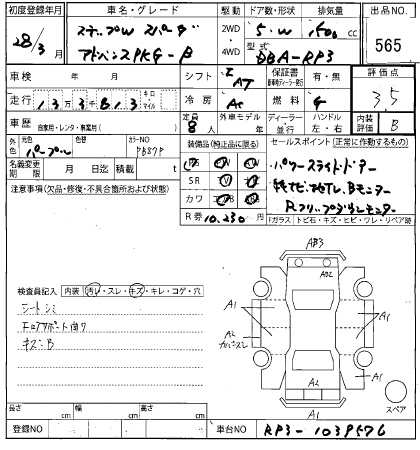 初度登録年月
車名・グレード
駆動
ドア数・形状
排気量
出品NO.
28/3月
ステップW スパーダ
2WD
4WD
5・W
1500 cc
565
アドバンスPKG-β
型式
DBA-RP3
車検 年 月
シフト
I AT
保証書
有・無
評価点
3.5
走行
1 3 万 3 千 8 1 3
キロ
マイル
冷房
AC
燃料
G
車歴
自家用・レンタ・事業用( )
定員
8人
外車モデル
年
ディーラー・並行
ハンドル
左・右
内装評価
B
外色
元色
パープル
色替
カラーNO
PB87P
装備品(純正品に限る)
セールスポイント(正常に作動するもの)
名義変更期限
月 日迄
積載 t
PS
SR
カワ
R券 10,230 円
パワースライドドアー
純ナビ・地TV、Bモニター
Rフリップダウンモニター
注意事項(欠品・修復・不具合箇所および状態)
「ガラス トビ石・キズ・ヒビ・ワレ・リペア跡」
AB3
AB2
検査員記入
内装 汚れ・スレ・キズ・キレ・コゲ・穴
シートシミ
キズ・B
A1
A1
A2
A1
A2
A1
スペア
長さ cm
幅 cm
高さ cm
登録NO
車台NO
RP3-1039576